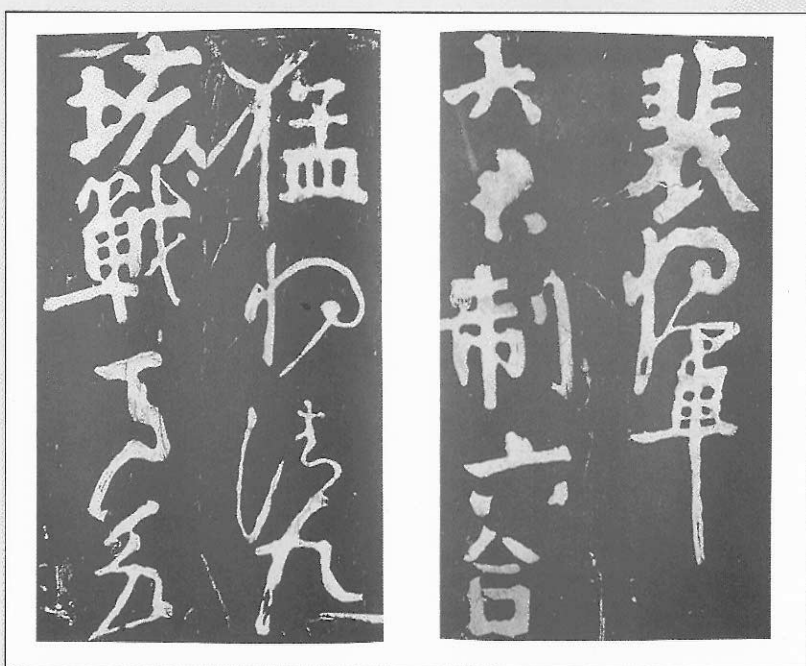 裴將軍
大君制六合
猛將清九
垓戰馬若